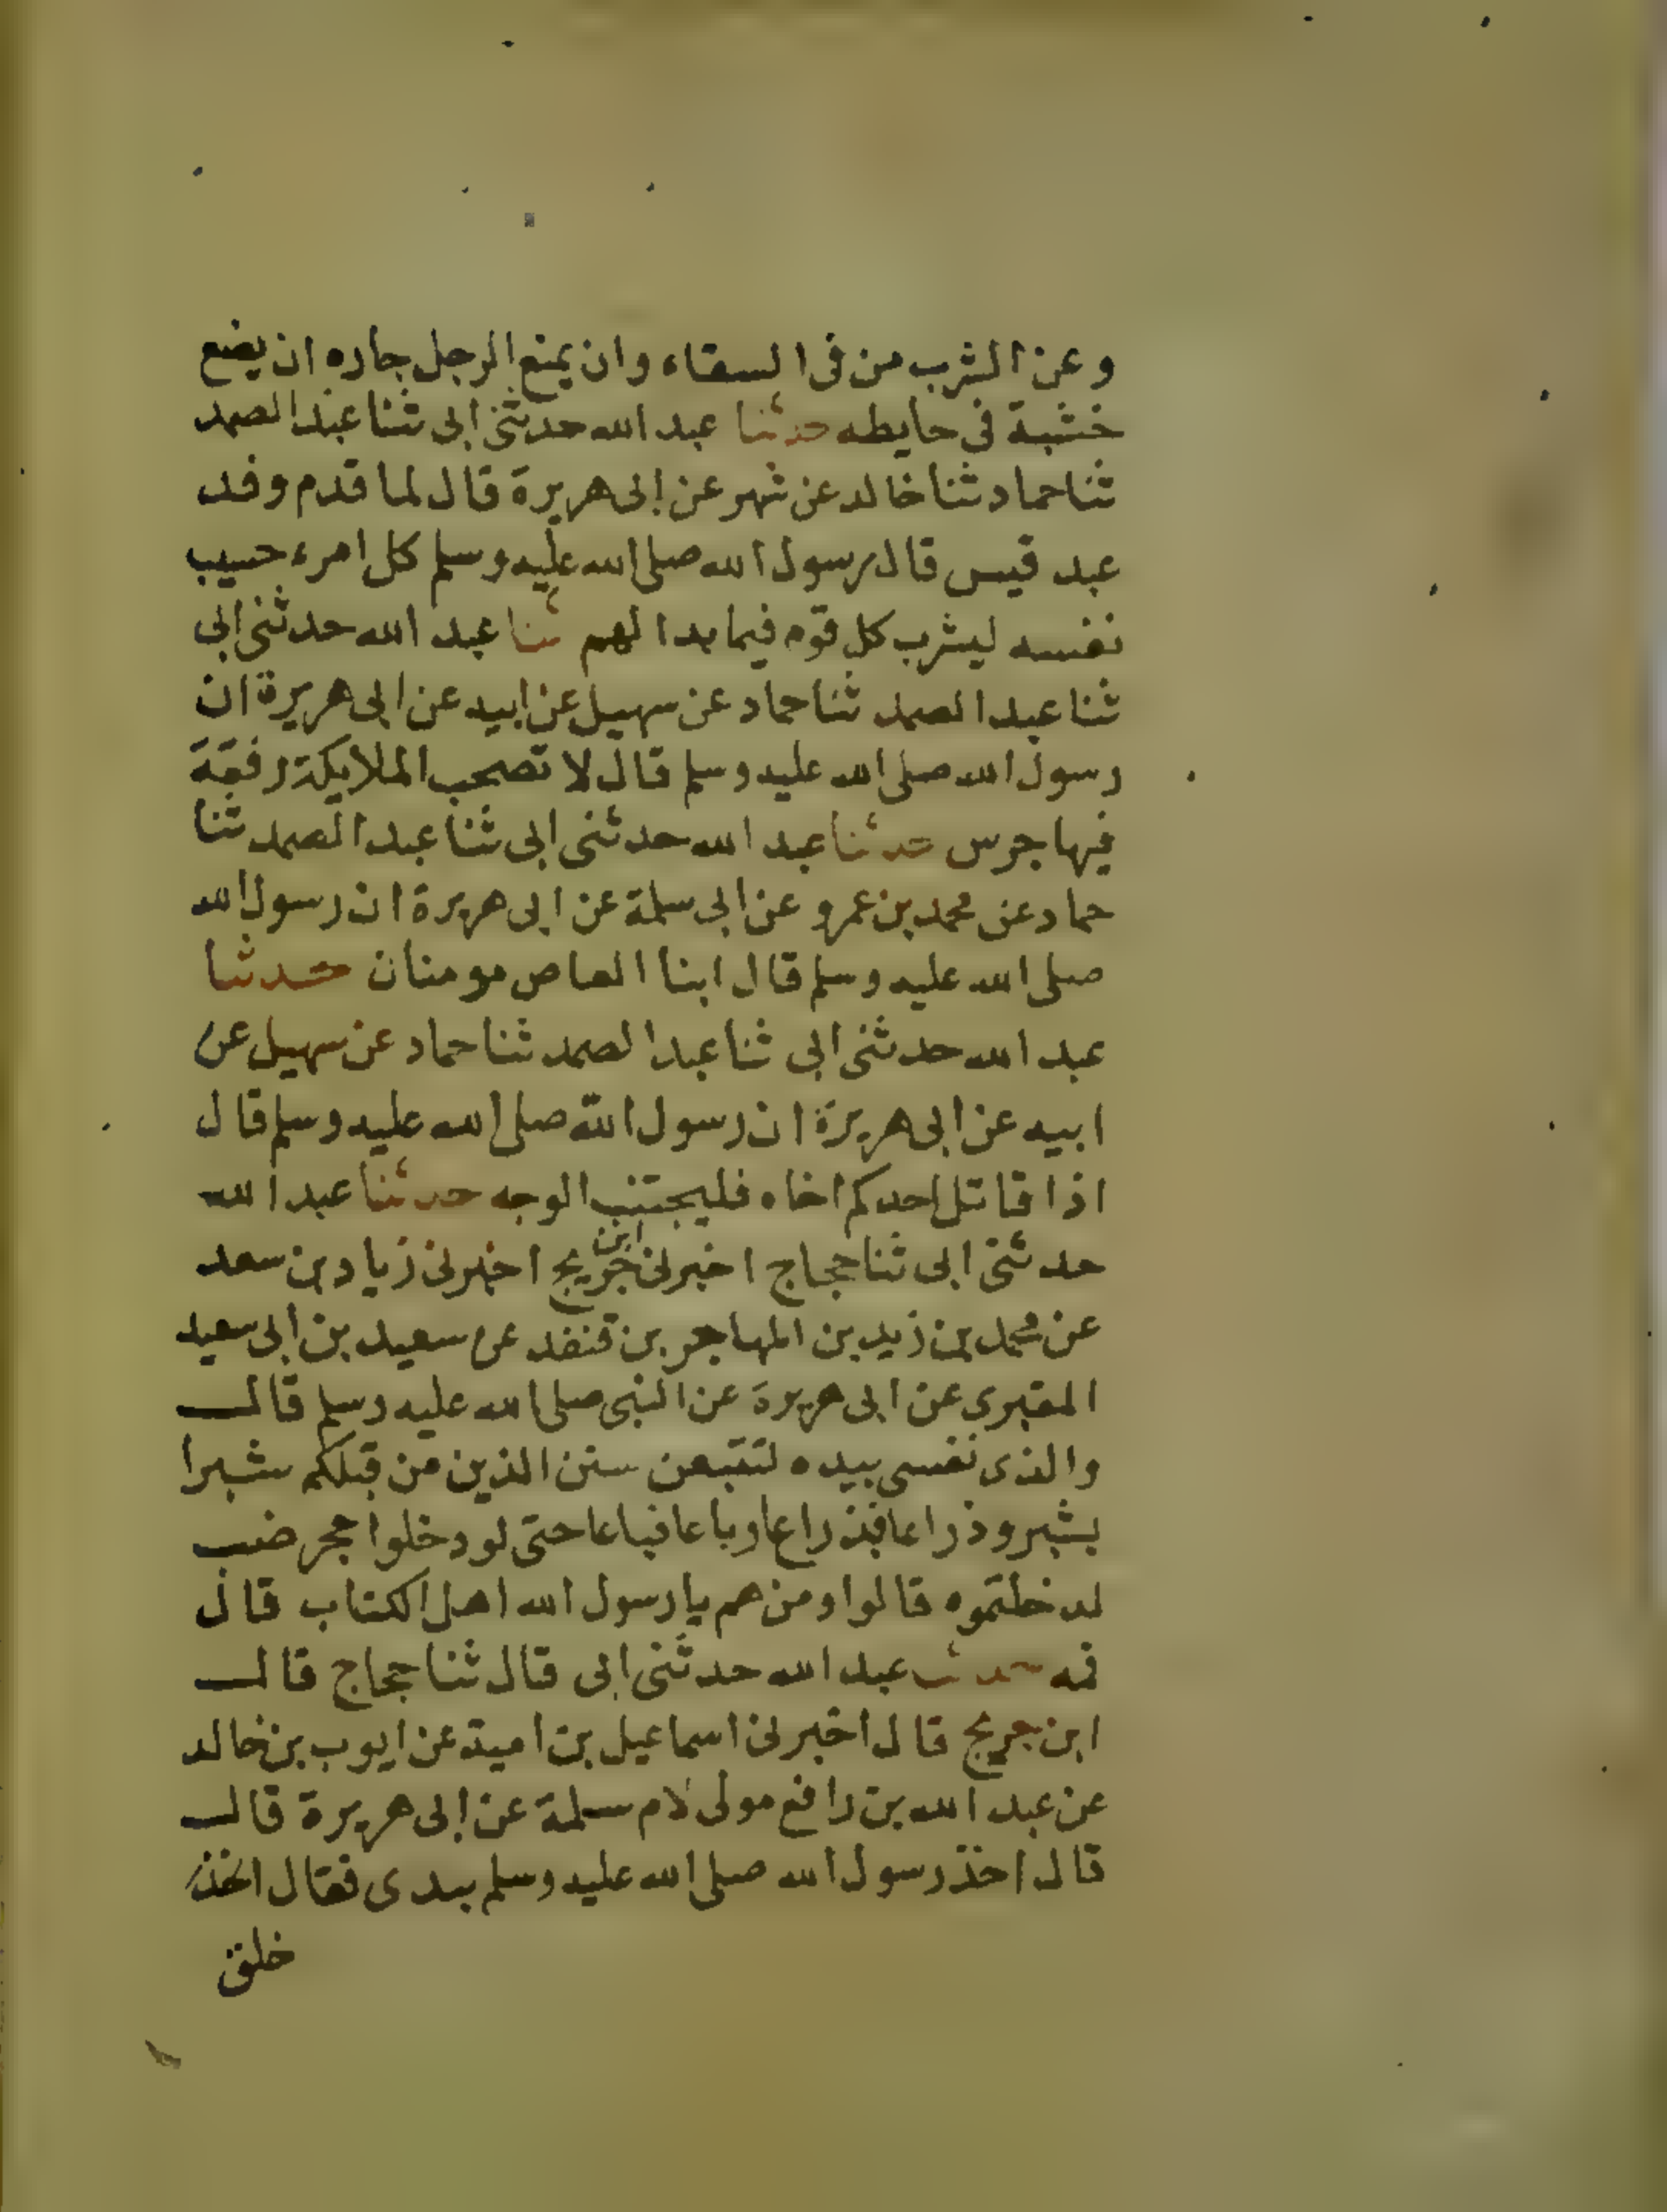 وعن الشرب من فى السقاء وان يمنع الرجل جاره ان يضع
خشبة فى حايطه حدثنا عبد الله حدثنى ابى ثنا عبد الصمد
ثنا حماد ثنا خالد عن شهر عن ابى هريرة قال لما قدم وفد
عبد قيس قال رسول الله صلى الله عليه وسلم كل امرء حسيب
نفسه ليشرب كل قوم فيما بدا لهم ثنا عبد الله حدثنى ابى
ثنا عبد الصمد ثنا حماد عن سهيل عن ابيه عن ابى هريرة ان
رسول الله صلى الله عليه وسلم قال لا تصحب الملايكة رفقة
فيها جرس حدثنا عبد الله حدثنى ابى ثنا عبد الصمد ثنا
حماد عن محمد بن عمرو عن ابى سلمة عن ابى هريرة ان رسول الله
صلى الله عليه وسلم قال ابنا العاص مومنان حدثنا
عبد الله حدثنى ابى ثنا عبد الصمد ثنا حماد عن سهيل عن
ابيه عن ابى هريرة ان رسول الله صلى الله عليه وسلم قال
اذا قاتل احدكم اخاه فليجتنب الوجه حدثنا عبد الله
حدثنى ابى ثنا حجاج اخبرنى ابن جريج اخبرنى زياد بن سعد
عن محمد بن زيد بن المهاجر بن قنفد عن سعيد بن ابى سعيد
المقبرى عن ابى هريرة عن النبى صلى الله عليه وسلم قال
والذى نفسى بيده لتتبعن سنن الذين من قبلكم شبرا
بشبر وذراعا فذراعا وباعا فباعا حتى لو دخلوا جحر ضب
لدخلتموه قالوا ومن هم يا رسول الله اهل الكتاب قال
فمه حدثنا عبد الله حدثنى ابى قال ثنا حجاج قال
ابن جريج قال اخبرنى اسماعيل بن امية عن ايوب بن خالد
عن عبد الله بن رافع مولى لام سلمة عن ابى هريرة قال
قال اخذ رسول الله صلى الله عليه وسلم بيدى فقال
خلق